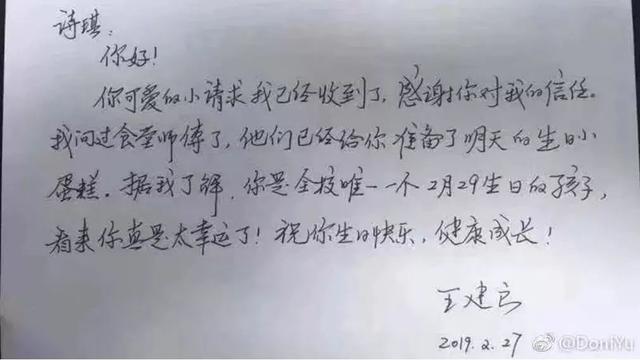 诗琪：
你好！
你可爱的小请求我已经收到了，感谢你对我的信任。
我问过食堂师傅了，他们已经给你准备了明天的生日小
蛋糕。据我了解，你是全校唯一一个2月29生日的孩子，
看来你真是太幸运了！祝你生日快乐，健康成长！
王建
2019.2.27
@DoniYu